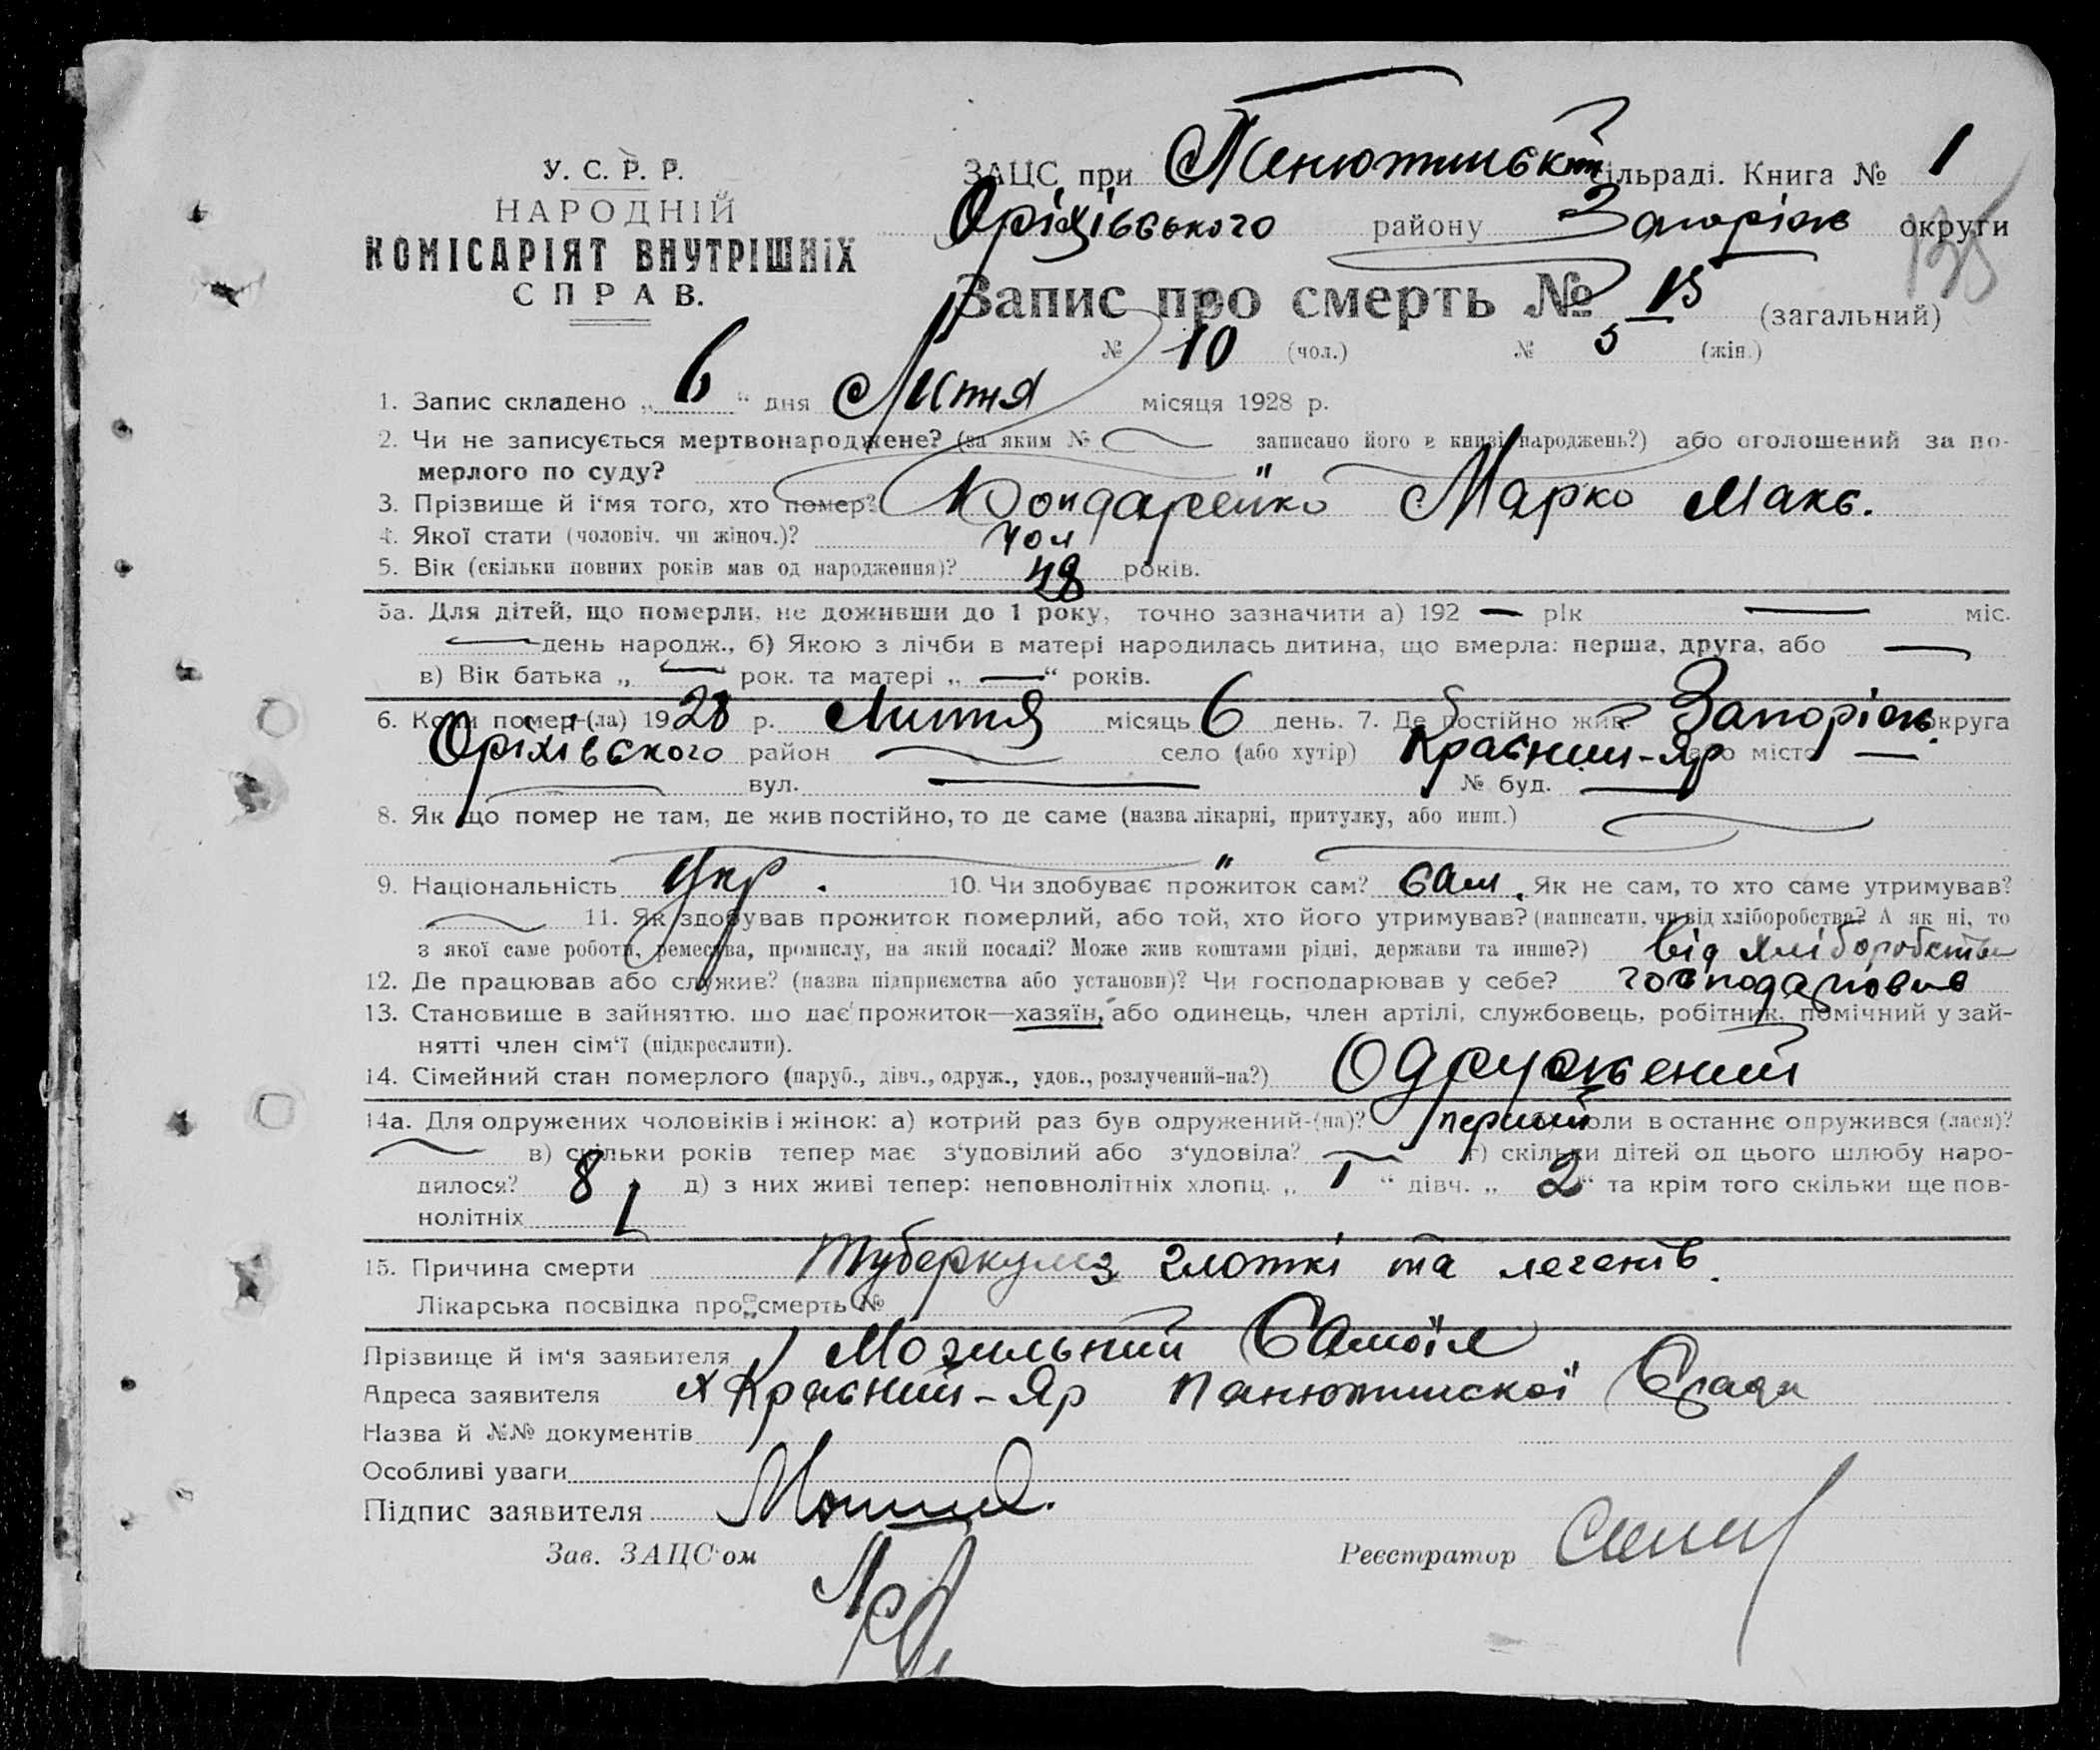 У. С. Р. Р.
НАРОДНІЙ
КОМІСАРІЯТ ВНУТРІШНІХ
СПРАВ.
ЗАЦС при сільраді. Книга № 1
Оріхівського району Запоріж округи
135
Запис про смерть № 15 (загальний)
№ 10 (чол.) № 5 (жін.)
1. Запис складено „ 6 “ дня Липня місяця 1928 р.
2. Чи не записується мертвонароджене? (за яким № записано його в книзі народжень?) або оголошений за по-
мерлого по суду? "
3. Прізвище й і'мя того, хто помер? Бондарейко Марко Макс.
4. Якої стати (чоловіч. чи жіноч.)? чол
5. Вік (скільки повних років мав од народження)? 48 років.
5а. Для дітей, що померли, не доживши до 1 року, точно зазначити а) 192 — рік — міс.
— день народж., б) Якою з лічби в матері народилась дитина, що вмерла: перша, друга, або —
в) Вік батька „ — рок. та матері „ — “ років.
6. Коли помер-(ла) 1928 р. Липня місяць 6 день. 7. Де постійно жив? Запоріж. округа
Оріхівського район село (або хутір) Красний-Яр або місто —
вул. — № буд. —
8. Як що помер не там, де жив постійно, то де саме (назва лікарні, притулку, або инш.)
"
9. Національність Укр. 10. Чи здобуває прожиток сам? сам. Як не сам, то хто саме утримував?
11. Як здобував прожиток померлий, або той, хто його утримував? (написати, чи від хліборобства? А як ні, то
з якої саме роботи, ремесва, промислу, на якій посаді? Може жив коштами рідні, держави та инше?) від хліборобства
12. Де працював або служив? (назва підприємства або установи)? Чи господарював у себе? господарював
13. Становище в зайняттю, що дає прожиток—хазяїн, або одинець, член артілі, службовець, робітник, помічний у зай-
нятті член сім'ї (підкреслити).
14. Сімейний стан померлого (паруб., дівч., одруж., удов., розлучений-на?) Одружений
14а. Для одружених чоловіків і жінок: а) котрий раз був одружений-(на)? перший коли востаннє одружився (лася)?
в) скільки років тепер має з'удовілий або з'удовіла? — г) скільки дітей од цього шлюбу наро-
дилося? 8 д) з них живі тепер: неповнолітніх хлопц. „ 1 “ дівч. „ 2 “ та крім того скільки ще пов-
нолітніх 1
15. Причина смерти Туберкульз глоткі та легенів.
Лікарська посвідка про смерть №
Прізвище й ім'я заявителя Могильний Самоїл
Адреса заявителя х Красний-Яр Панютинської Сради
Назва й №№ документів
Особливі уваги
Підпис заявителя
Зав. ЗАЦС'ом Реєстратор